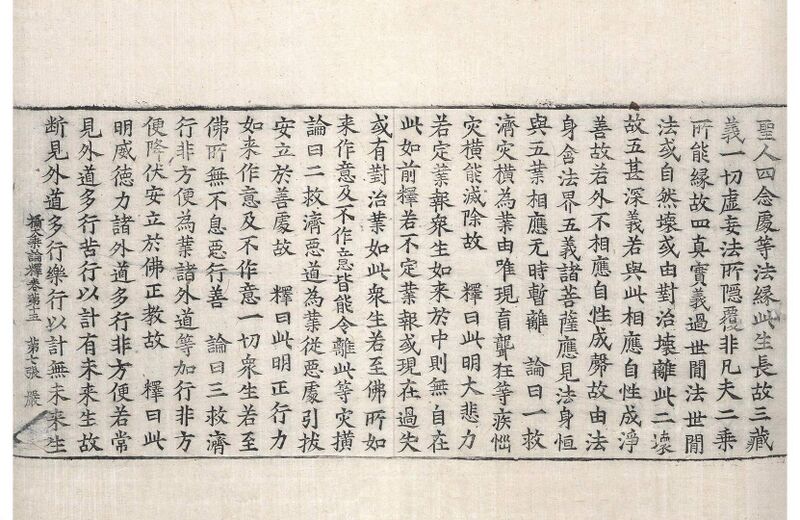 聖人四念處等法緣此生長故三藏
義一切虛妄法所隱覆非凡夫二乘
所能緣故四真實義過世閒法世閒
法或自然壞或由對治壞離此二壞
故五甚深義若與此相應自性成淨
善故若外不相應自性成㲉故由法
身含法界五義諸菩薩應見法身恒
與五業相應无時暫離　論曰一救
濟灾橫為業由唯現盲聾狂等疾惱
灾橫能滅除故　釋曰此明大悲力
若定業報眾生如來於中則無自在
此如前釋若不定業報或現在過失
或有對治業如此眾生若至佛所如
來作意及不作意皆能令離此等灾橫
論曰二救濟惡道為業從惡處引拔
安立於善處故　釋曰此明正行力
如來作意及不作意一切眾生若至
佛所無不息惡行善　論曰三救濟
行非方便為業諸外道等加行非方
便降伏安立於佛正教故　釋曰此
明威德力諸外道多行非方便若常
見外道多行苦行以計有未來生故
断見外道多行樂行以計無未來生
攝大乘論釋卷第十五　第七張　嚴